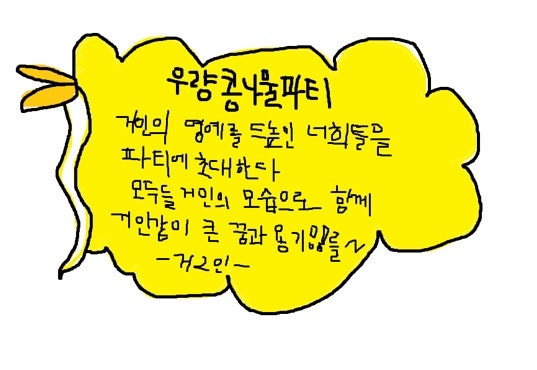 우량콩나물파티
거인의 명예를 드높인 너희들을
파티에 초대한다
모두들 거인의 모습으로 함께
거인같이 큰 꿈과 용기를~
-거인-